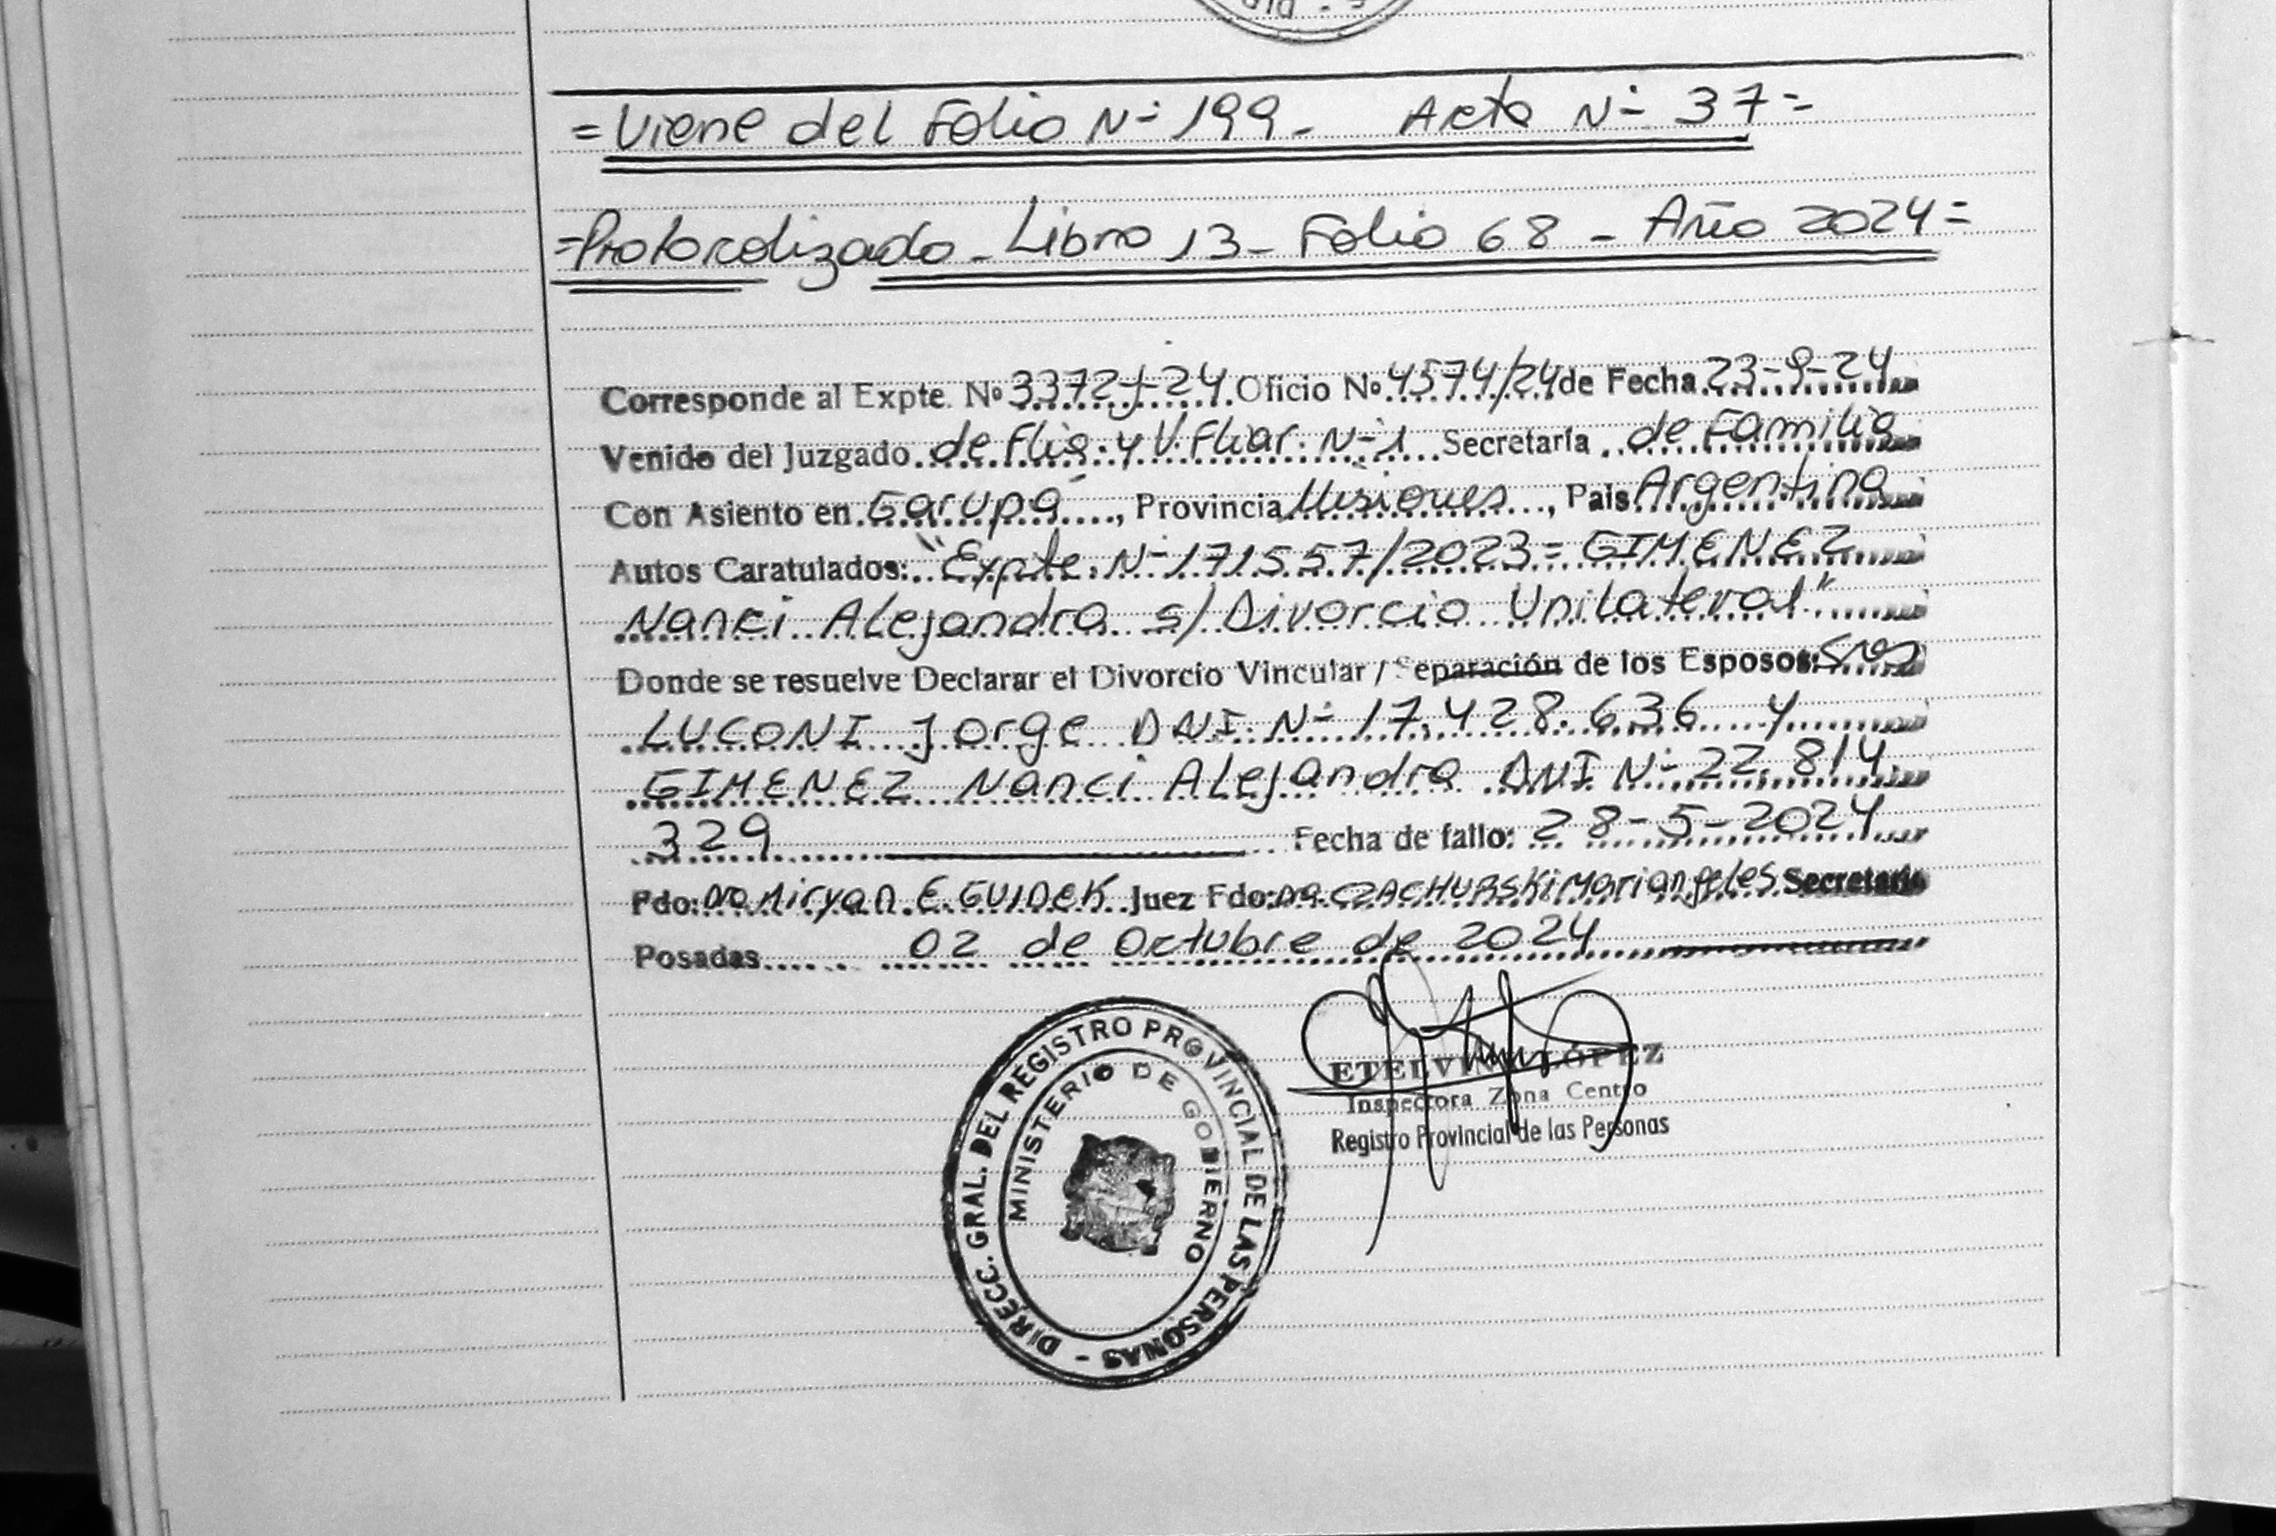 = Viene del Folio Nº 199 - Acta Nº 37 =
= Protocolizado - Libro 13 - Folio 68 - Año 2024 =
Corresponde al Expte. Nº 3372 J 24 Oficio Nº 4574/24 de Fecha 23-9-24
Venido del Juzgado de Flia. y V. Fliar. Nº 1 Secretaría de Familia
Con Asiento en Garupá, Provincia Misiones, País Argentina
Autos Caratulados: "Expte. Nº 171557/2023 = GIMENEZ
Nanci Alejandra s/ Divorcio Unilateral"
Donde se resuelve Declarar el Divorcio Vincular / Separación de los Esposos: Sres
LUCONI Jorge DNI Nº 17.428.636 y
GIMENEZ Nanci Alejandra DNI Nº 22.814.
329 Fecha de fallo: 28-5-2024
Fdo: Dra Miryan E. GUIDEK Juez Fdo: Dra. CZACHURSKi Mariangeles Secretaria
Posadas 02 de Octubre de 2024
DIRECC. GRAL. DEL REGISTRO PROVINCIAL DE LAS PERSONAS -
MINISTERIO DE GOBIERNO
ETELVINA LÓPEZ
Inspectora Zona Centro
Registro Provincial de las Personas